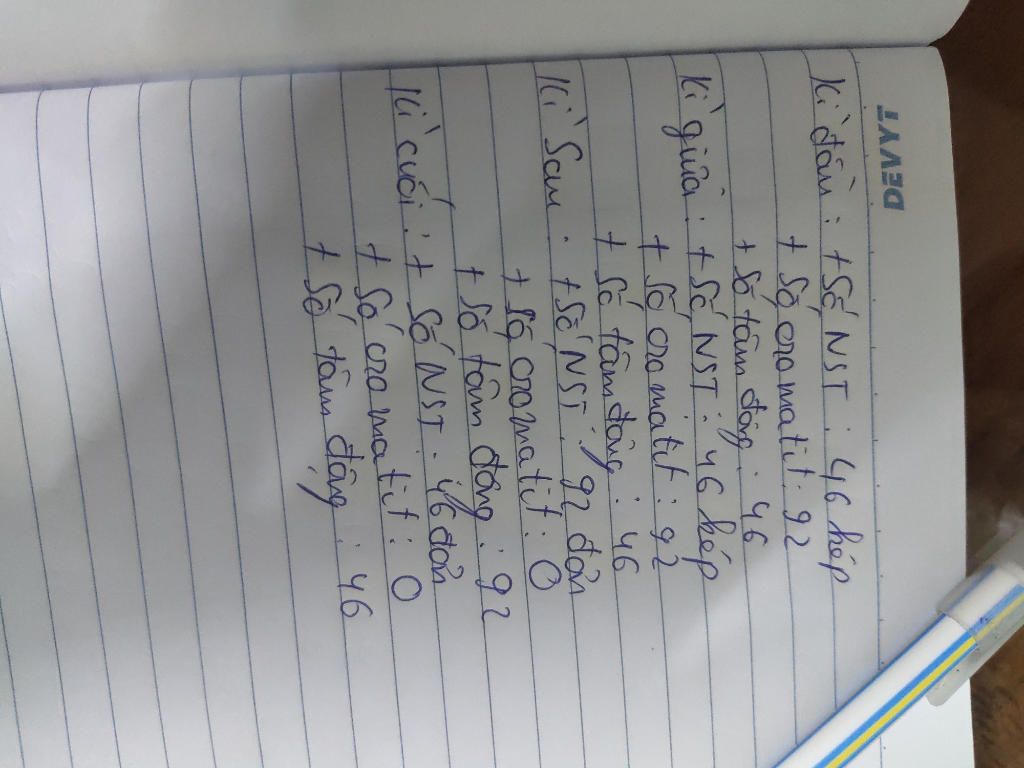 DEVYT
Kì đầu : + Số NST : 46 kép
+ Số cromatit : 92
+ Số tâm động : 46
Kì giữa : + Số NST : 46 kép
+ Số cromatit : 92
+ Số tâm động : 46
Kì Sau : + Số NST : 92 đơn
+ Số cromatit : 0
+ Số tâm động : 92
Kì cuối : + Số NST : 46 đơn
+ Số cromatit : 0
+ Số tâm động : 46